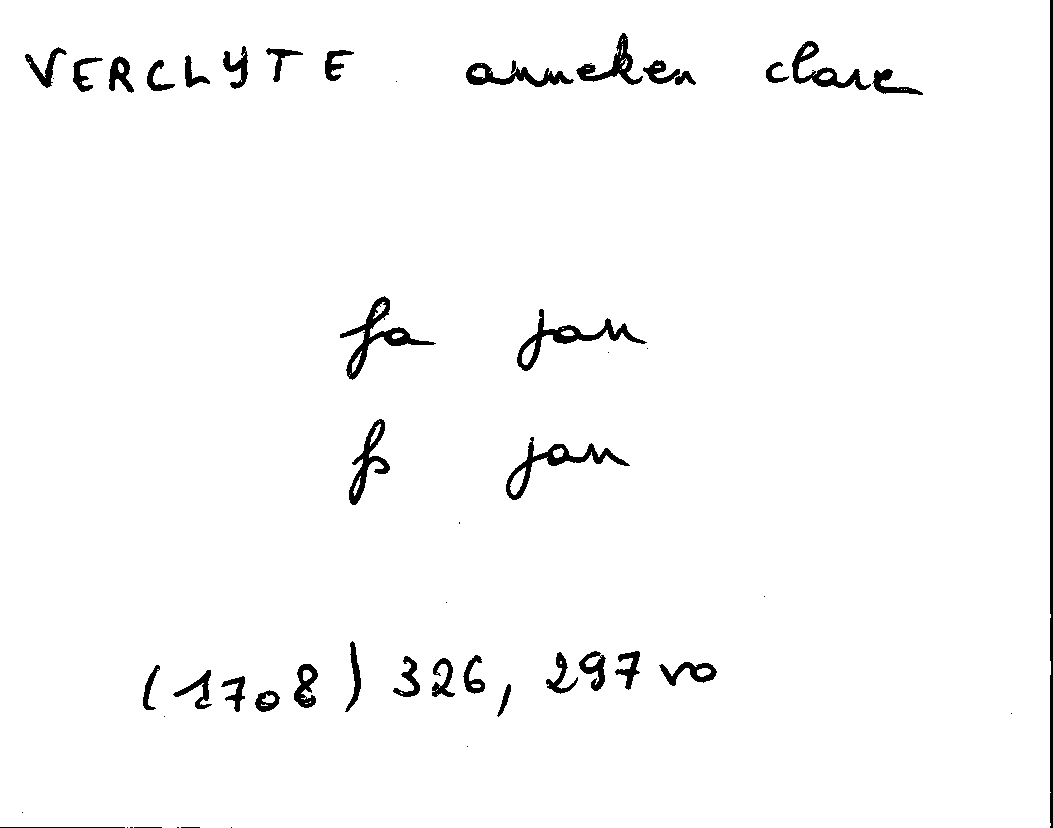 VERCLYTE anneken clare
fa jan
fs jan
(1708) 326, 297 vo